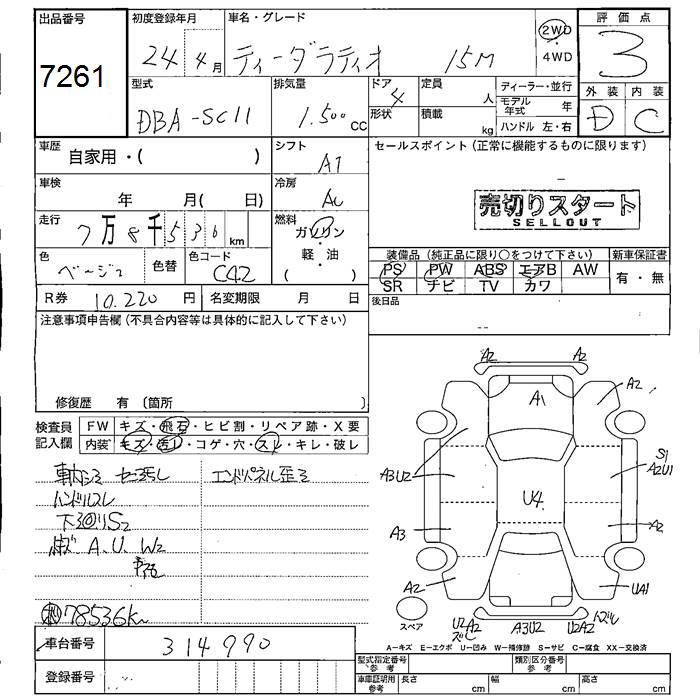 出品番号 初度登録年月 車名・グレード 評価点
7261 24年4月 ティーダラティオ 15M 2WD・4WD 3
型式 排気量 ドア 4 定員 人 ディーラー・並行 外装 内装
DBA-SC11 1.500cc 形状 積載 kg モデル年式 年 D C
ハンドル 左・右
車歴 自家用・( ) シフト AT セールスポイント(正常に機能するものに限ります)
車検 年 月( 日) 冷房 AC 売切りスタート
SELLOUT
走行 7万8千536km 燃料 ガソリン・軽・油 ( )
色 ベージュ 色替 色コード C42 装備品(純正品に限り○をつけて下さい) 新車保証書
PS PW ABS エアB AW 有・無
SR ナビ TV カワ
R券 10.220円 名変期限 月 日 後日品
注意事項申告欄(不具合内容等は具体的に記入して下さい)
修復歴 有〔箇所 〕
検査員記入欄 FW キズ・飛石・ヒビ割・リペア跡・X要
内装 キズ・汚レ・コゲ・穴・スレ・キレ・破レ
車内シミ エンドパネル歪ミ
ハンドルスレ
下廻りS2
A.U. W2
78536km
A2 A2
A2 A1
A3U2 S1
A2U1
U4
A3 A2
A2 UA1
スペア U2 A2 A3U2 U2A2
A-キズ E-エクボ U-凹み W-補修跡 S-サビ C-腐食 XX-交換済
車台番号 314990 型式指定番号 参考 類別区分番号 参考
登録番号 車庫証明用 参考 長さ cm 幅 cm 高さ cm